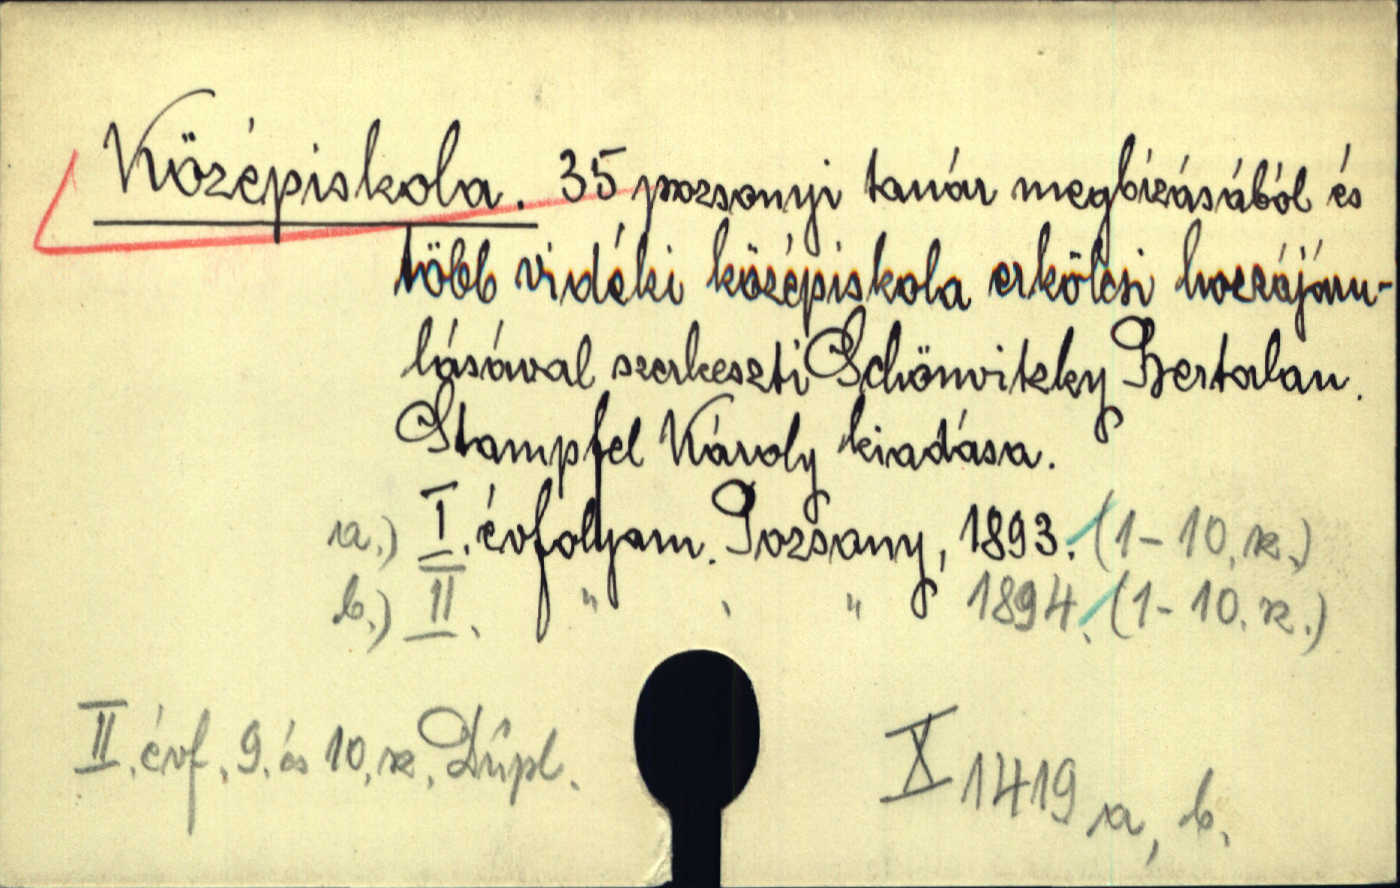 Középiskola. 35 pozsonyi tanár megbízásából és
több vidéki középiskola erkölcsi hozzájáru-
lásával szerkeszti Schönvitzky Bertalan.
Stampfel Károly kiadása.
a.) I. évfolyam. Pozsony, 1893. (1-10. sz.)
b.) II. " " 1894. (1-10. sz.)
II. évf. 9. és 10. sz. Dupl.
X 1419 a, b.